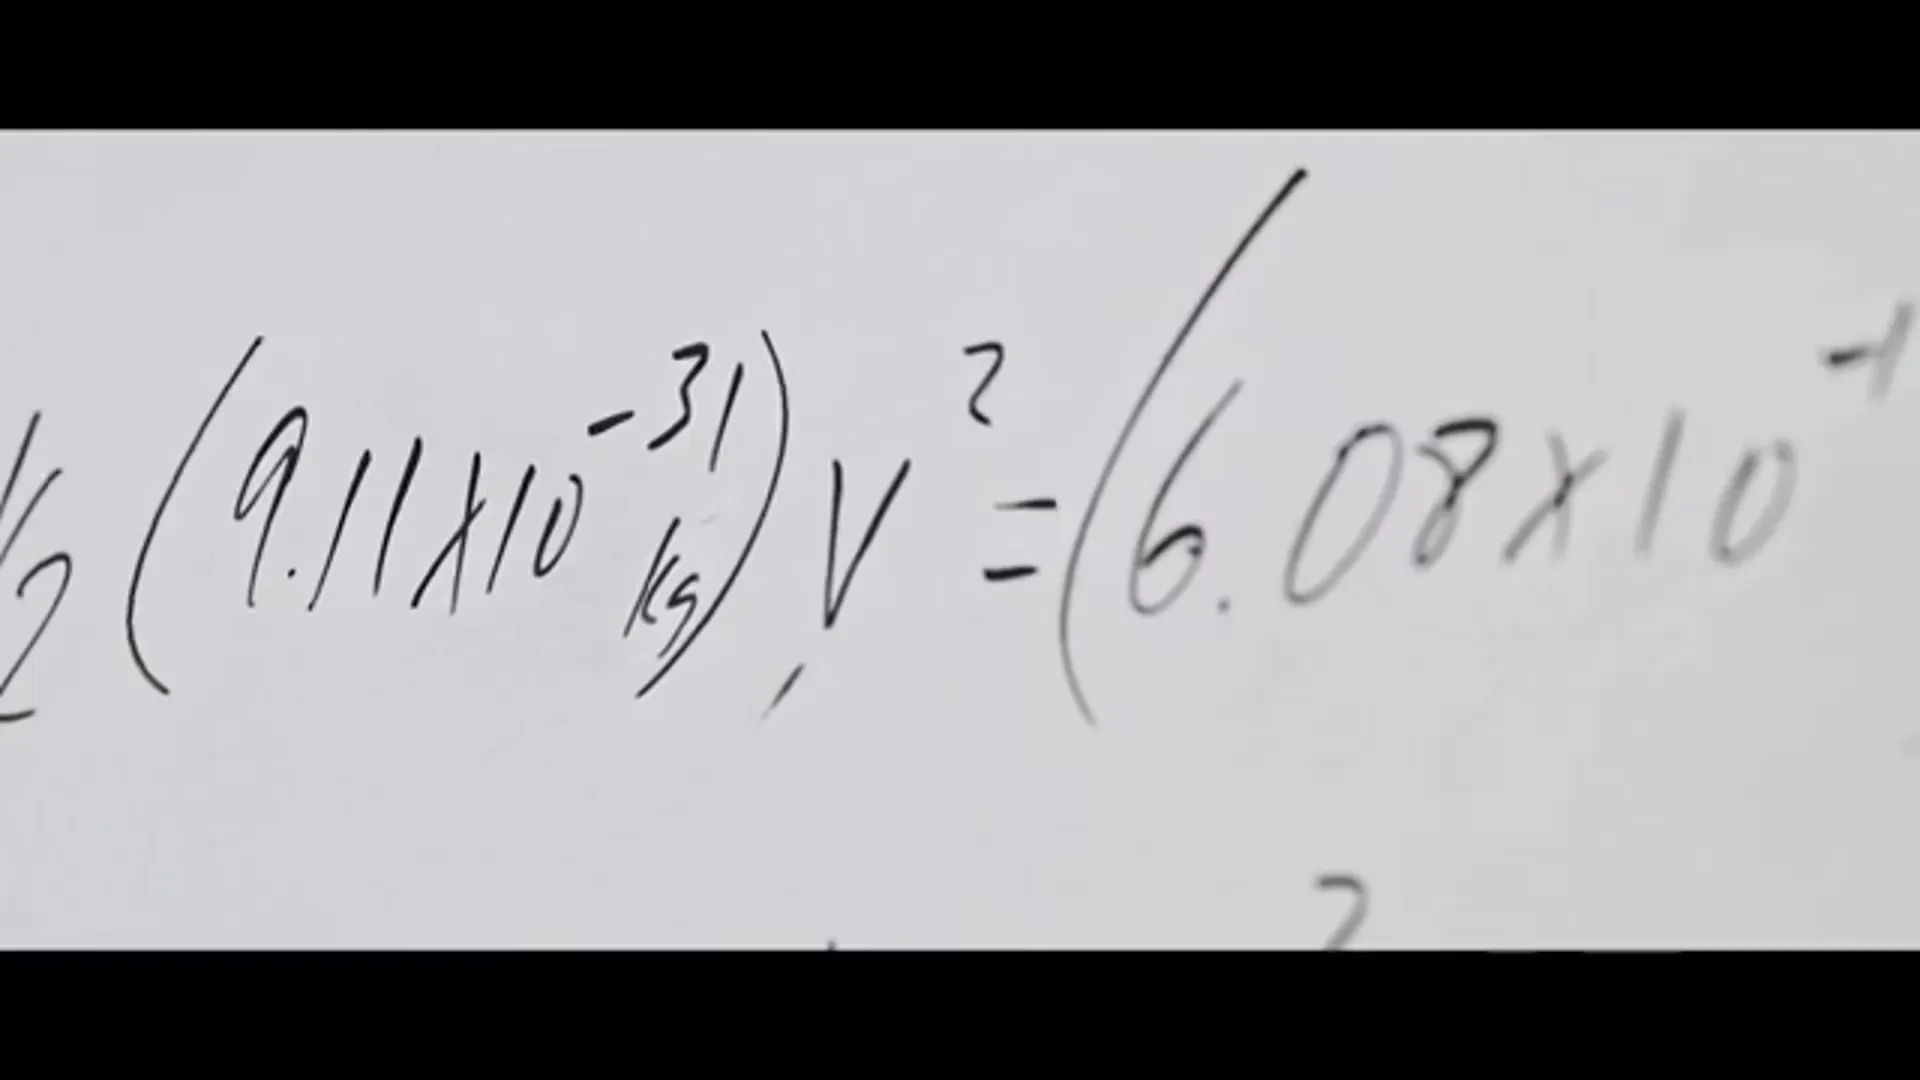 ½ (9.11x10⁻³¹ kg) V² = (6.08x10⁻¹
2